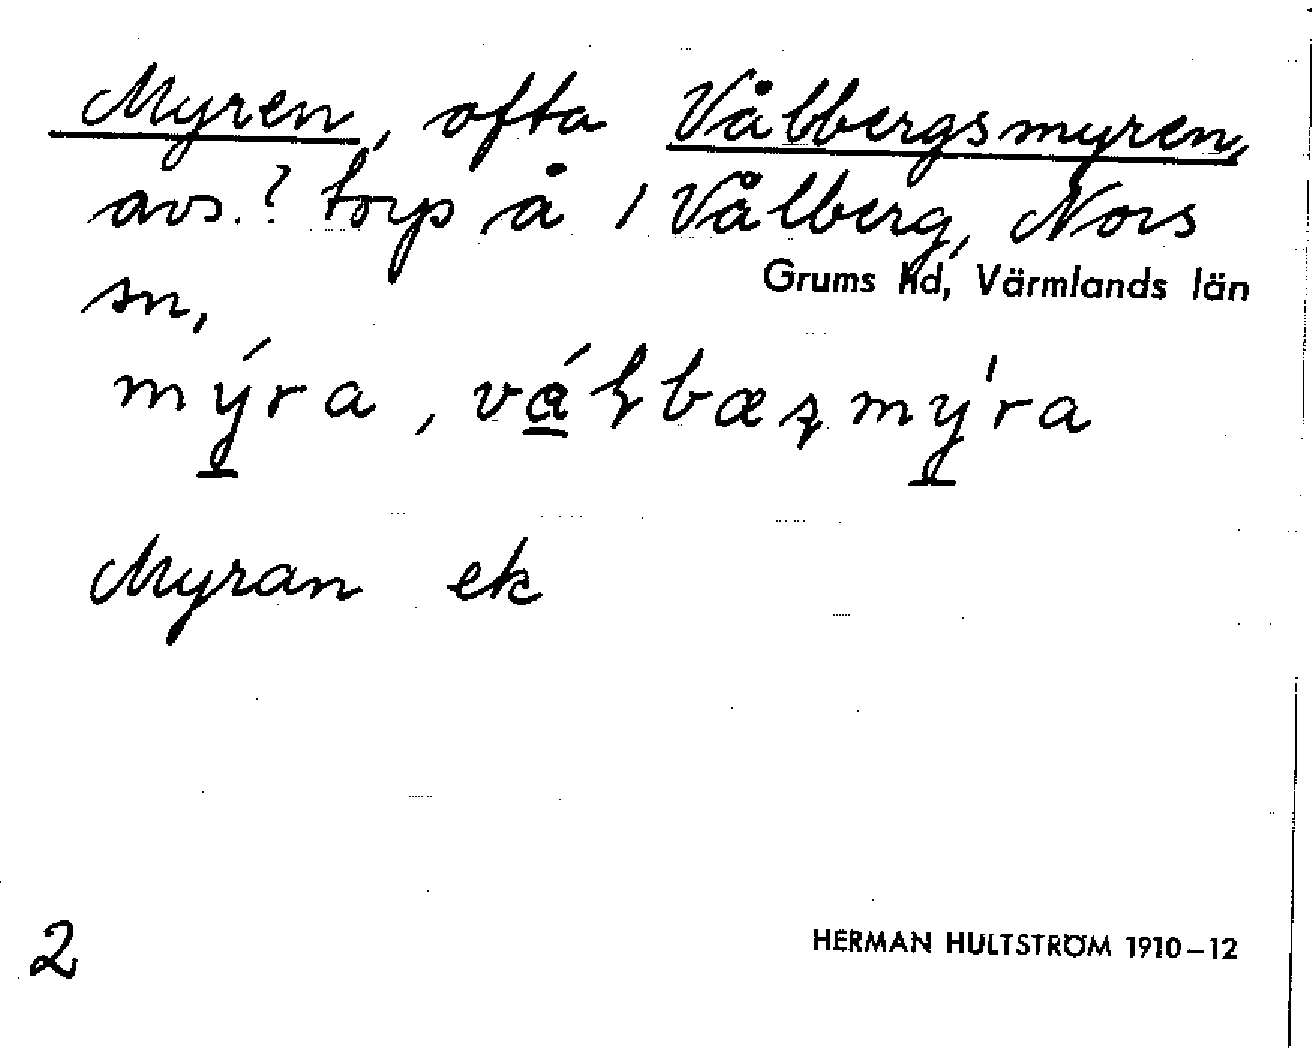 Myren, ofta Vålbergsmyren,
avs.? torp å 1 Vålberg, Nors
Grums hd, Värmlands län
sn,
mýra,
Myran ek
2
HERMAN HULTSTRÖM 1910–12